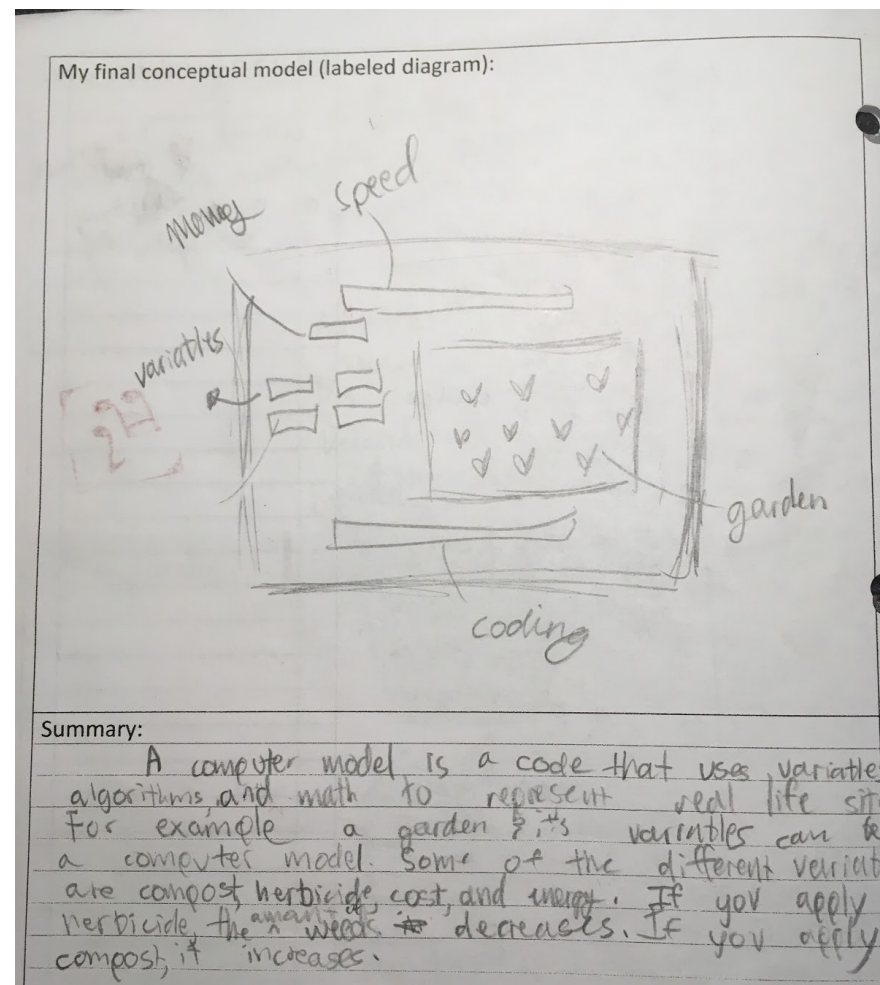 My final conceptual model (labeled diagram):
speed
money
variables
garden
coding
Summary:
A computer model is a code that uses variable
algorithms, and math to represent real life sit
For example a garden & it's variables can be
a computer model. Some of the different veriat
are compost, herbicide, cost, and energy. If you apply
herbicide, the amant of weeds decreases. If you apply
compost, it increases.